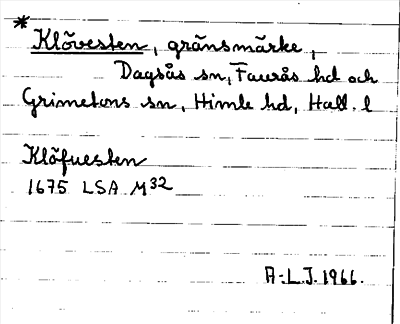 * Klövesten, gränsmärke,
Dagsås sn, Faurås hd och
Grimetons sn, Himle hd, Hall. l
Klöfuesten
1675 LSA M32
A:L.J. 1966.